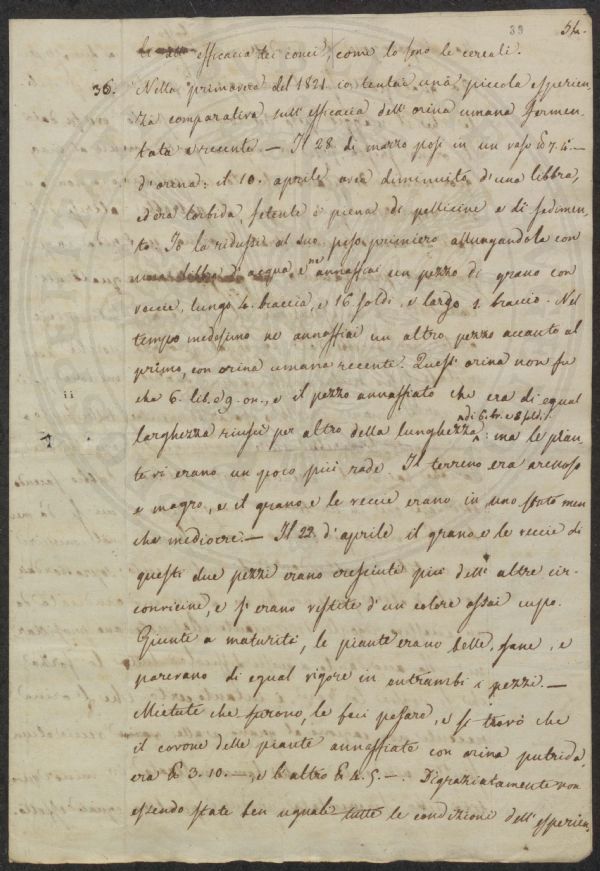 39 54.
efficacia dei conci, come lo sono le cereali.
36. Nella primavera del 1821 io tentai una piccola esperien-
za comparativa sull' efficacia dell' orina umana fermen-
tata e recente. — Il 28 di marzo posi in un vaso ℔ 7. 4. —
d'orina: il 10. aprile avea diminuito d'una libbra,
ed era torbida, fetente e piena di pellicine e di sedimen-
to. Io la ridussi al suo peso primiero allungandola con
una libbra d'acqua, e ne annaffiai un pezzo di grano con
veccie, lungo 4. braccia, e 16 soldi, e largo 1. braccio. Nel
tempo medesimo ne annaffiai un altro pezzo accanto al
primo, con orina umana recente. Quest' orina non fu
che 6. lib. e 9. on., e il pezzo annaffiato che era di egual
larghezza riuscì per altro della lunghezza di 6. br. e 8 sldi.: ma le pian-
te vi erano un poco più rade. Il terreno era arenoso
e magro, e il grano e le veccie erano in uno stato men
che mediocre. — Il 22 d'aprile il grano e le veccie di
questi due pezzi erano cresciute più dell' altre cir-
convicine, e si erano vestite d'un colore assai cupo.
Giunte a maturità, le piante erano belle, sane, e
parevano di egual vigore in entrambi i pezzi. —
Mietute che furono, le feci pesare, e si trovò che
il covone delle piante annaffiate con orina putrida
era ℔ 3. 10. —, e l'altro ℔ 4. 5. —. Disgraziatamente non
essendo state ben uguali tutte le condizioni dell' esperien-